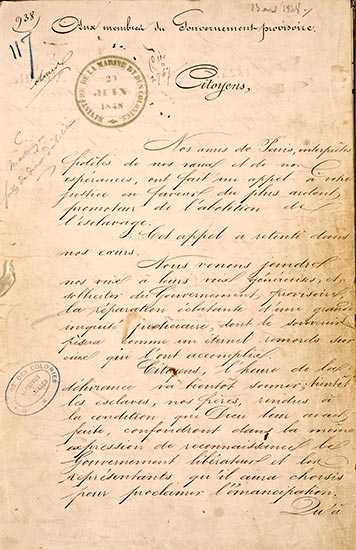 238
13 avril 1848
Aux membres du Gouvernement provisoire.
117
MINISTÈRE DE LA MARINE ET DES COLONIES
29
JUIN
1848
Citoyens,
Nos amis de Paris, interprètes
fidèles de nos vœux et de nos
espérances, ont fait un appel à votre
justice en faveur du plus ardent
promoteur de l'abolition de
l'esclavage.
Cet appel a retenti dans
nos cœurs.
Nous venons joindre
nos voix à leurs voix généreuses, et
solliciter du Gouvernement provisoire
la réparation éclatante d'une grande
iniquité judiciaire, dont le souvenir
pèsera comme un éternel remords sur
ceux qui l'ont accomplie.
Citoyens, l'heure de la
délivrance va bientôt sonner; bientôt
les esclaves, nos frères, rendus à
la condition que Dieu leur avait
faite, confondront dans la même
expression de reconnaissance le
Gouvernement libérateur et les
représentants qu'il aura choisis
pour proclamer l'émancipation.
Qu'à
DES COLONIES